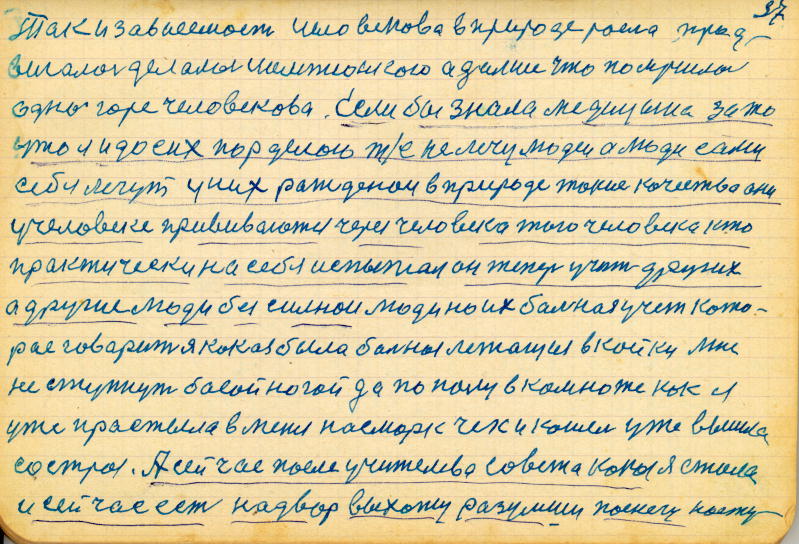 37
Так и зависемост человекова в природе росла пред
вигалос делалос а далше что получилос
одно горе человекова. Если бы знала медицына за то
што я и до сих пор делою т/е не лечу людей а люди сами
себя лечут у них ражденои в природе такие качества они
у человеке прививаются через человека того человека кто
практически на себя испытал он тепер учит других
а другие люди без силнои люди но их балная учет кото-
рае говарит я кокая была балноя лежащия в койки мне
не ступнут босой ногой да по полу в комноте как я
уже прастыла в меня насморк чех и кошел уже вышла
састроя. А сейчас после учителева совета кокоя стала
и сейчас ест на двор выхожу разумши по снегу